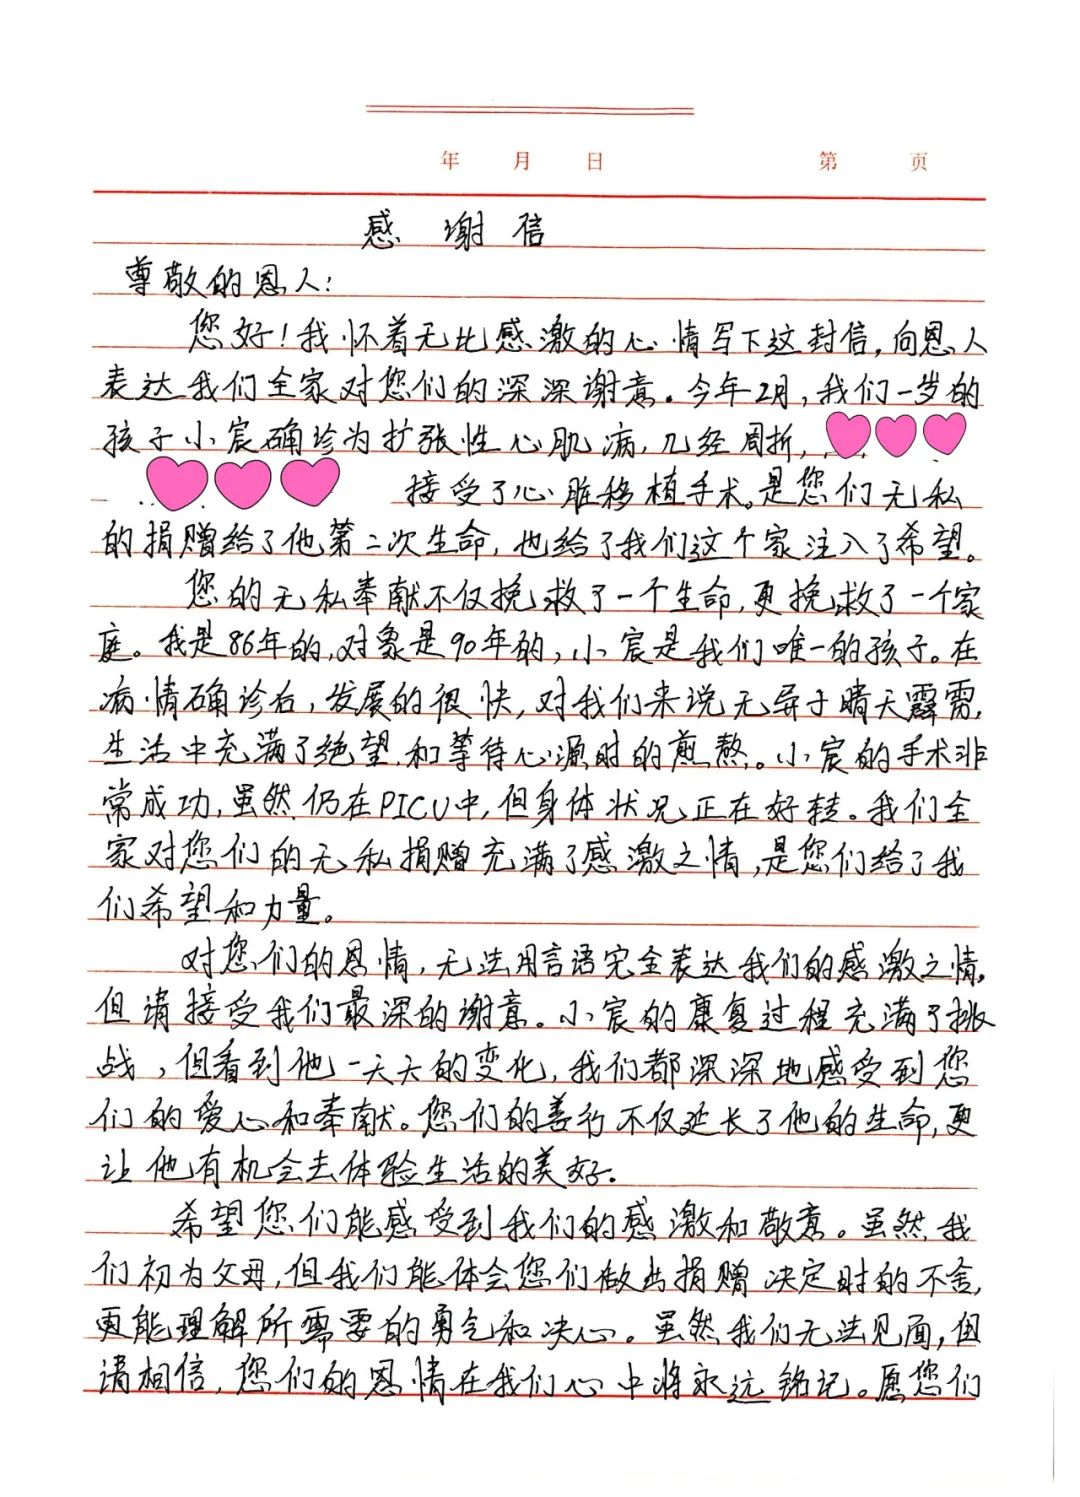 年 月 日 第 页
感谢信
尊敬的恩人:
您好!我怀着无比感激的心情写下这封信,向恩人
表达我们全家对您们的深深谢意。今年2月,我们一岁的
孩子小宸确诊为扩张性心肌病,几经周折,
接受了心脏移植手术。是您们无私
的捐赠给了他第二次生命,也给了我们这个家注入了希望。
您的无私奉献不仅挽救了一个生命,更挽救了一个家
庭。我是86年的,对象是90年的,小宸是我们唯一的孩子。在
病情确诊后,发展的很快,对我们来说无异于晴天霹雳,
生活中充满了绝望和等待心源时的煎熬。小宸的手术非
常成功,虽然仍在PICU中,但身体状况正在好转。我们全
家对您们的无私捐赠充满了感激之情,是您们给了我
们希望和力量。
对您们的恩情,无法用言语完全表达我们的感激之情,
但请接受我们最深的谢意。小宸的康复过程充满了挑
战,但看到他一天天的变化,我们都深深地感受到您
们的爱心和奉献。您们的善行不仅延长了他的生命,更
让他有机会去体验生活的美好。
希望您们能感受到我们的感激和敬意。虽然我
们初为父母,但我们能体会您们做出捐赠决定时的不舍,
更能理解所需要的勇气和决心。虽然我们无法见面,但
请相信,您们的恩情在我们心中将永远铭记。愿您们